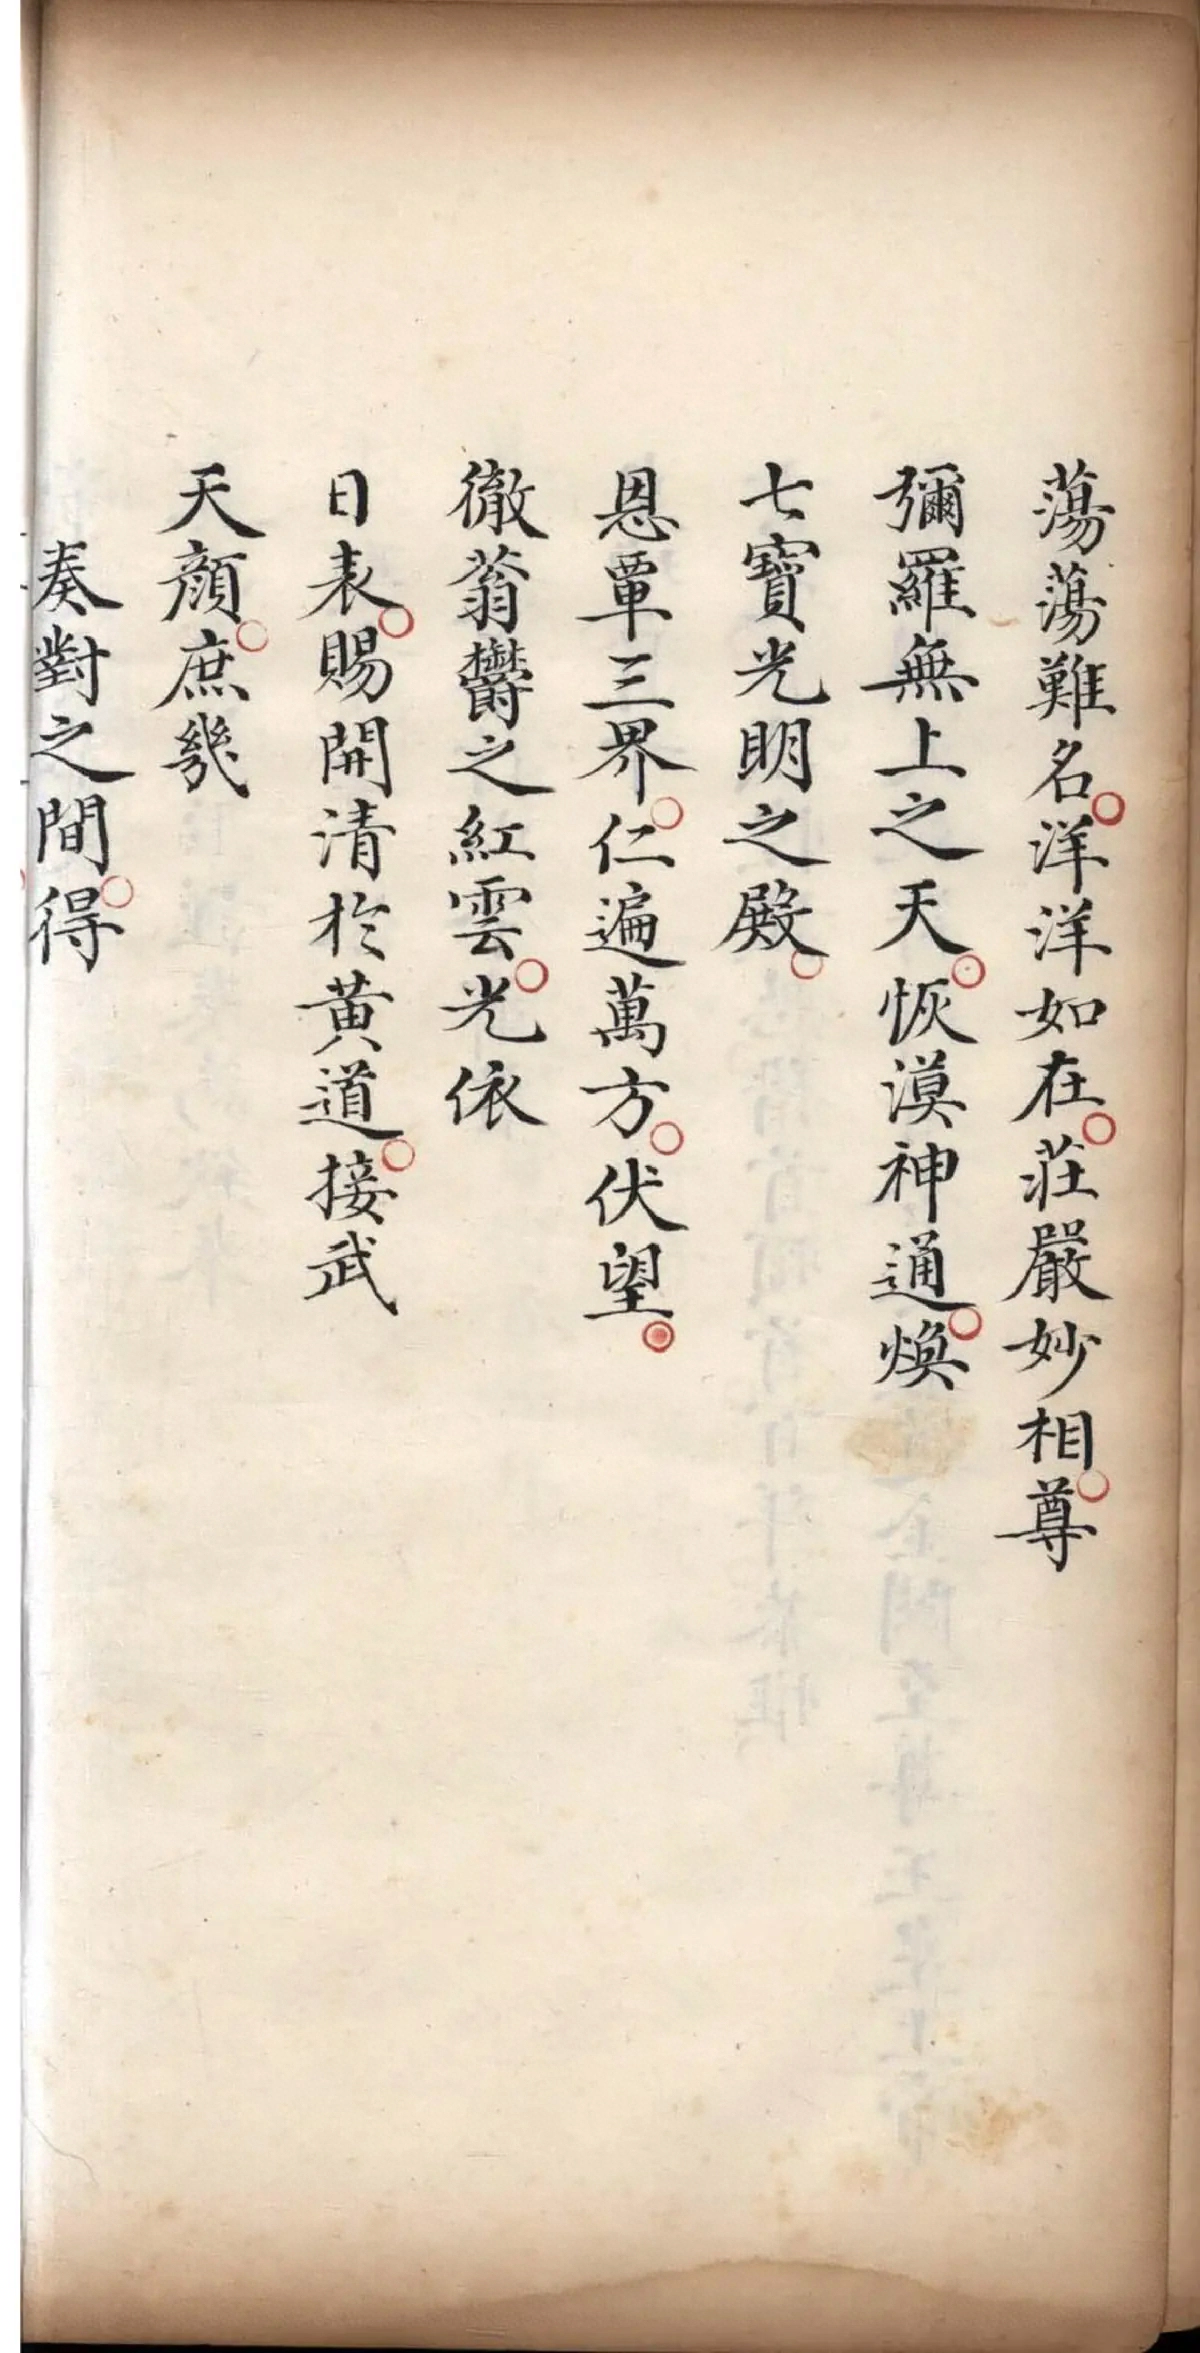 蕩蕩難名洋洋如在莊嚴妙相尊
彌羅無上之天恢漠神通煥
七寶光明之殿
恩覃三界仁遍萬方伏望
徹蓊鬱之紅雲光依
日表賜開清於黃道接武
天顏庶幾
奏對之間得